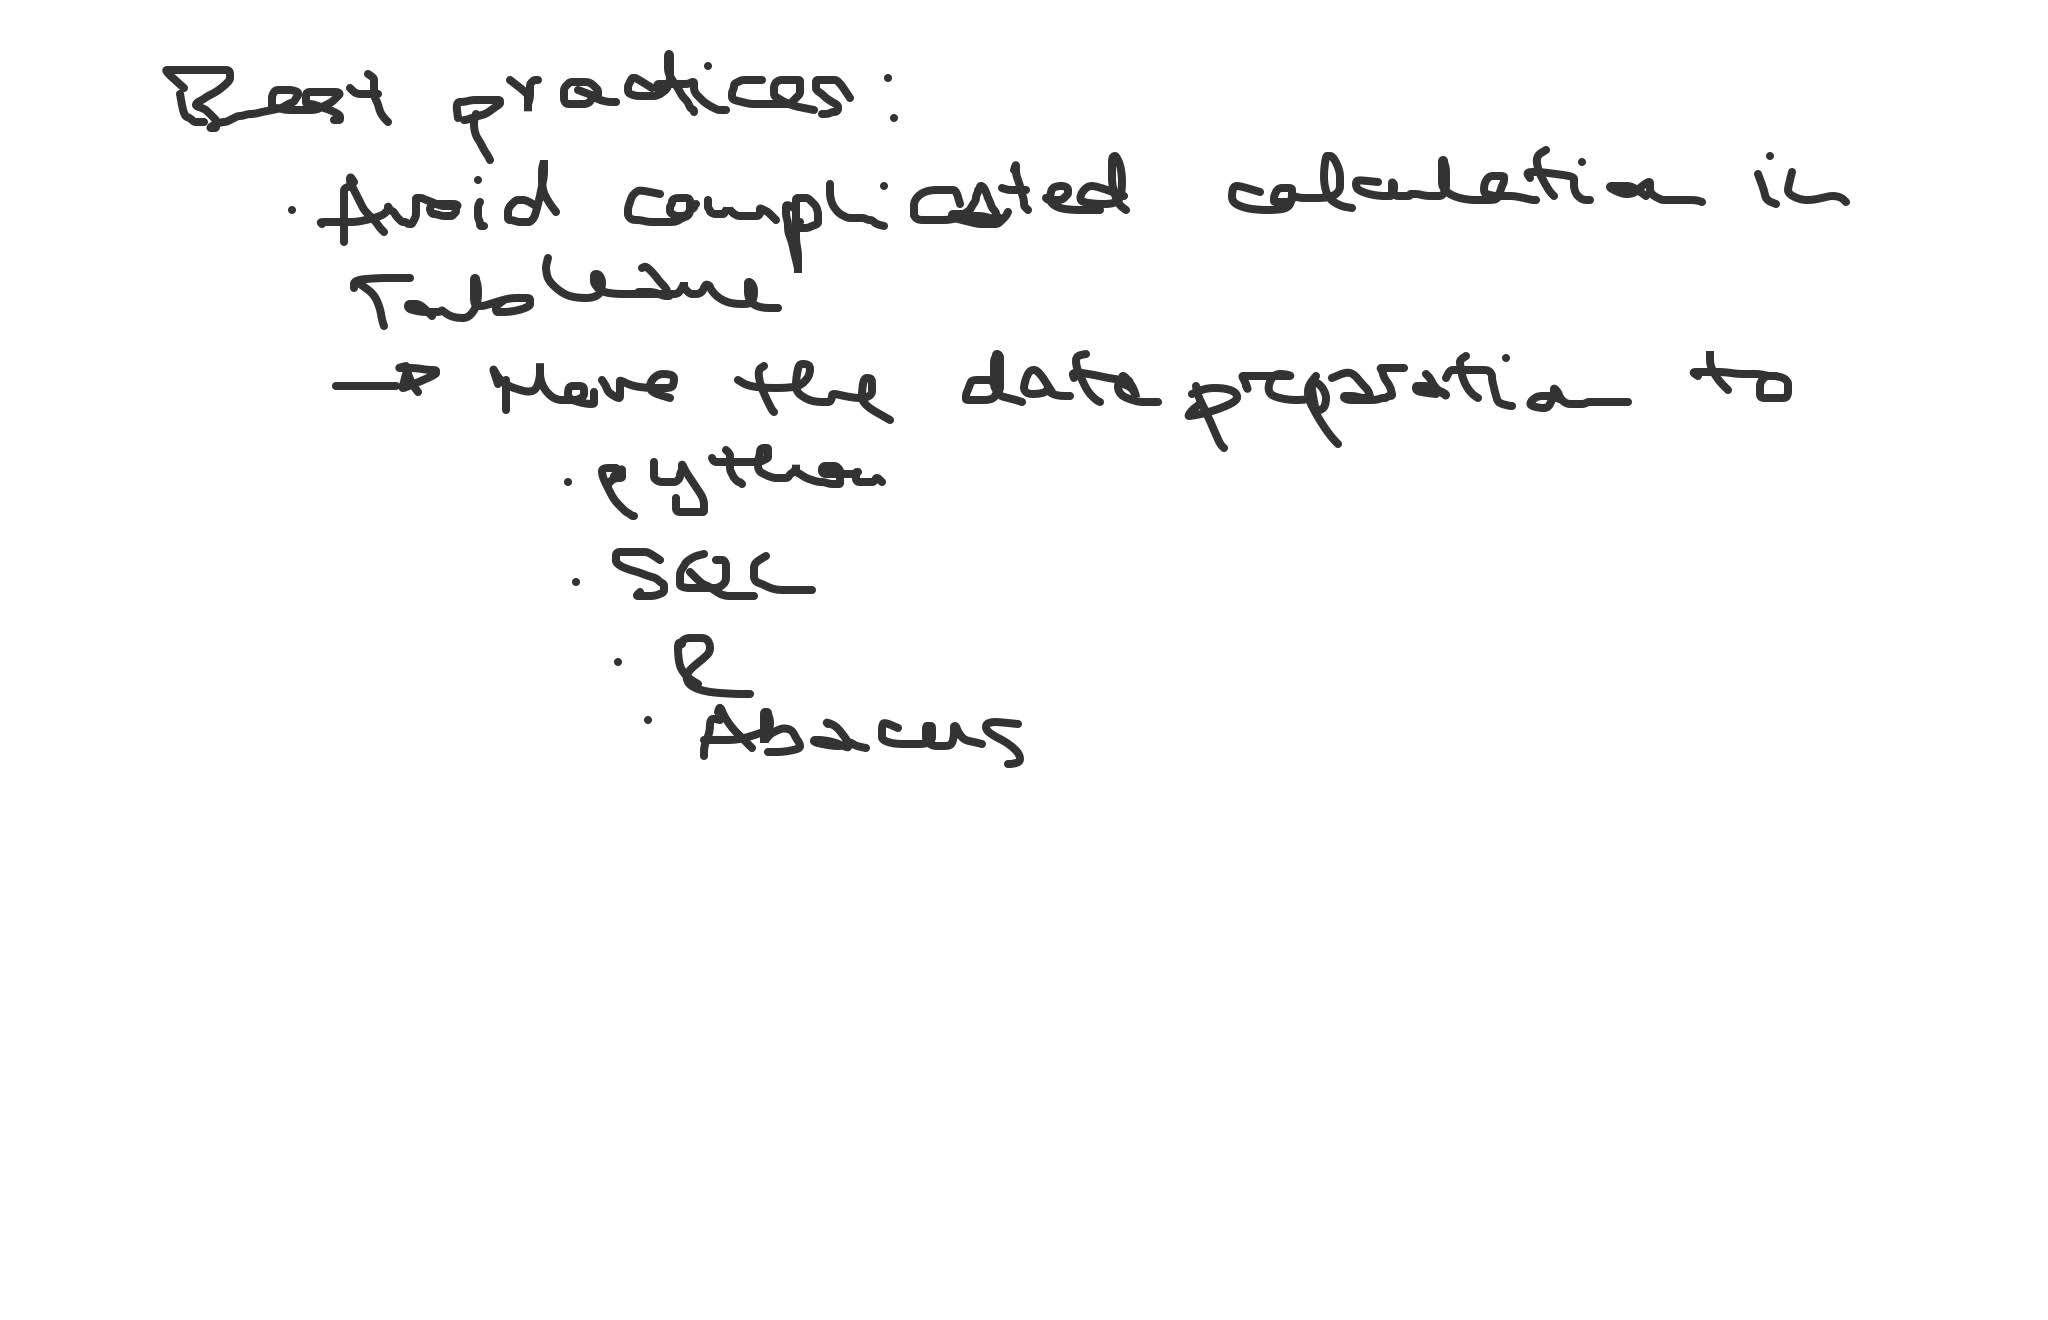 Best practices:
· Avoid complicated calculation in
Tableau
→ Move the data preparation to
· python
· SQL
· R
· Abacus